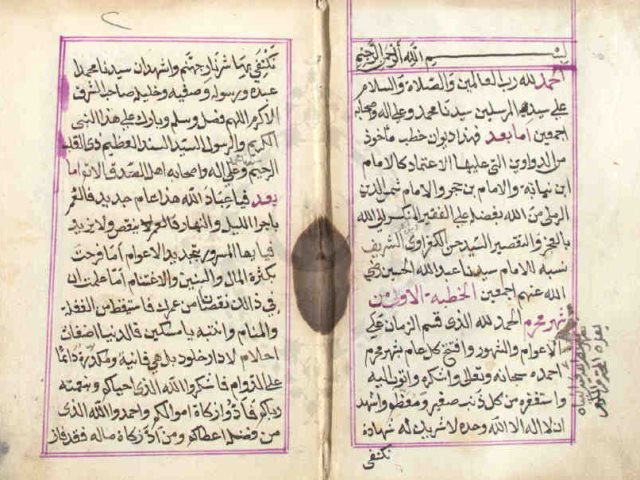 بسم الله الرحمن الرحيم
الحمد لله رب العالمين والصلاة والسلام
على سيد المرسلين سيدنا محمد وعلى اله وصحابه
اجمعين اما بعد فهذا ديوان خطب مأخوذ
من الدواوين التي عليها الاعتماد كالامام
ابن نباتة والامام بن حجر والامام شمس الدين
الرملي من الله بفضل على الفقير المنكسر لله
بالعجز والتقصير السيد حسن الكفراوي الشريف
نسبه للامام سيدنا عبد الله الحسين رضي
الله عنهم اجمعين الخطبة الاولى من
شهر محرم الحمد لله الذي قسم الزمان على
الاعوام والشهور وافتتح كل عام بشهر محرم
احمده سبحانه وتعالى واشكره واتوب اليه
واستغفره من كل ذنب صغير ومعظم واشهد
ان لا اله الا الله وحده لا شريك له شهادة
تكنفي
تكنفي بها شر نار جهنم واشهد ان سيدنا محمدا
عبده ورسوله وصفيه وخليله صاحب الشرف
الاكرم اللهم فصل وسلم وبارك على هذا النبي
الكريم والرسول السيد السند العظيم ذي القلب
الرحيم وعلى اله واصحابه اهل الصدق اما
بعد فيا عباد الله هذا عام جديد فالعمر
باجراء الليل والنهار فالعمر لا ينقص ولا يزيد
فيا بها المسرور بتجديد الاعوام اما فرحت
بكثرة المال والبنين والاغتنام اما علمت ان
في ذلك نقصان من عمرك فاستيقظ من الغفلة
والمنام وانتبه يا مسكين فالدنيا اضغاث
احلام لا دار خلود بل هي فانية ومكدرة دائما
على الدوام فاشكروا الله الذي احياكم وبنعمته
رباكم فادوا زكاة اموالكم واحمدوا الله الذي
من فضله اعطاكم ومن ادى زكاة ماله فقد فاز